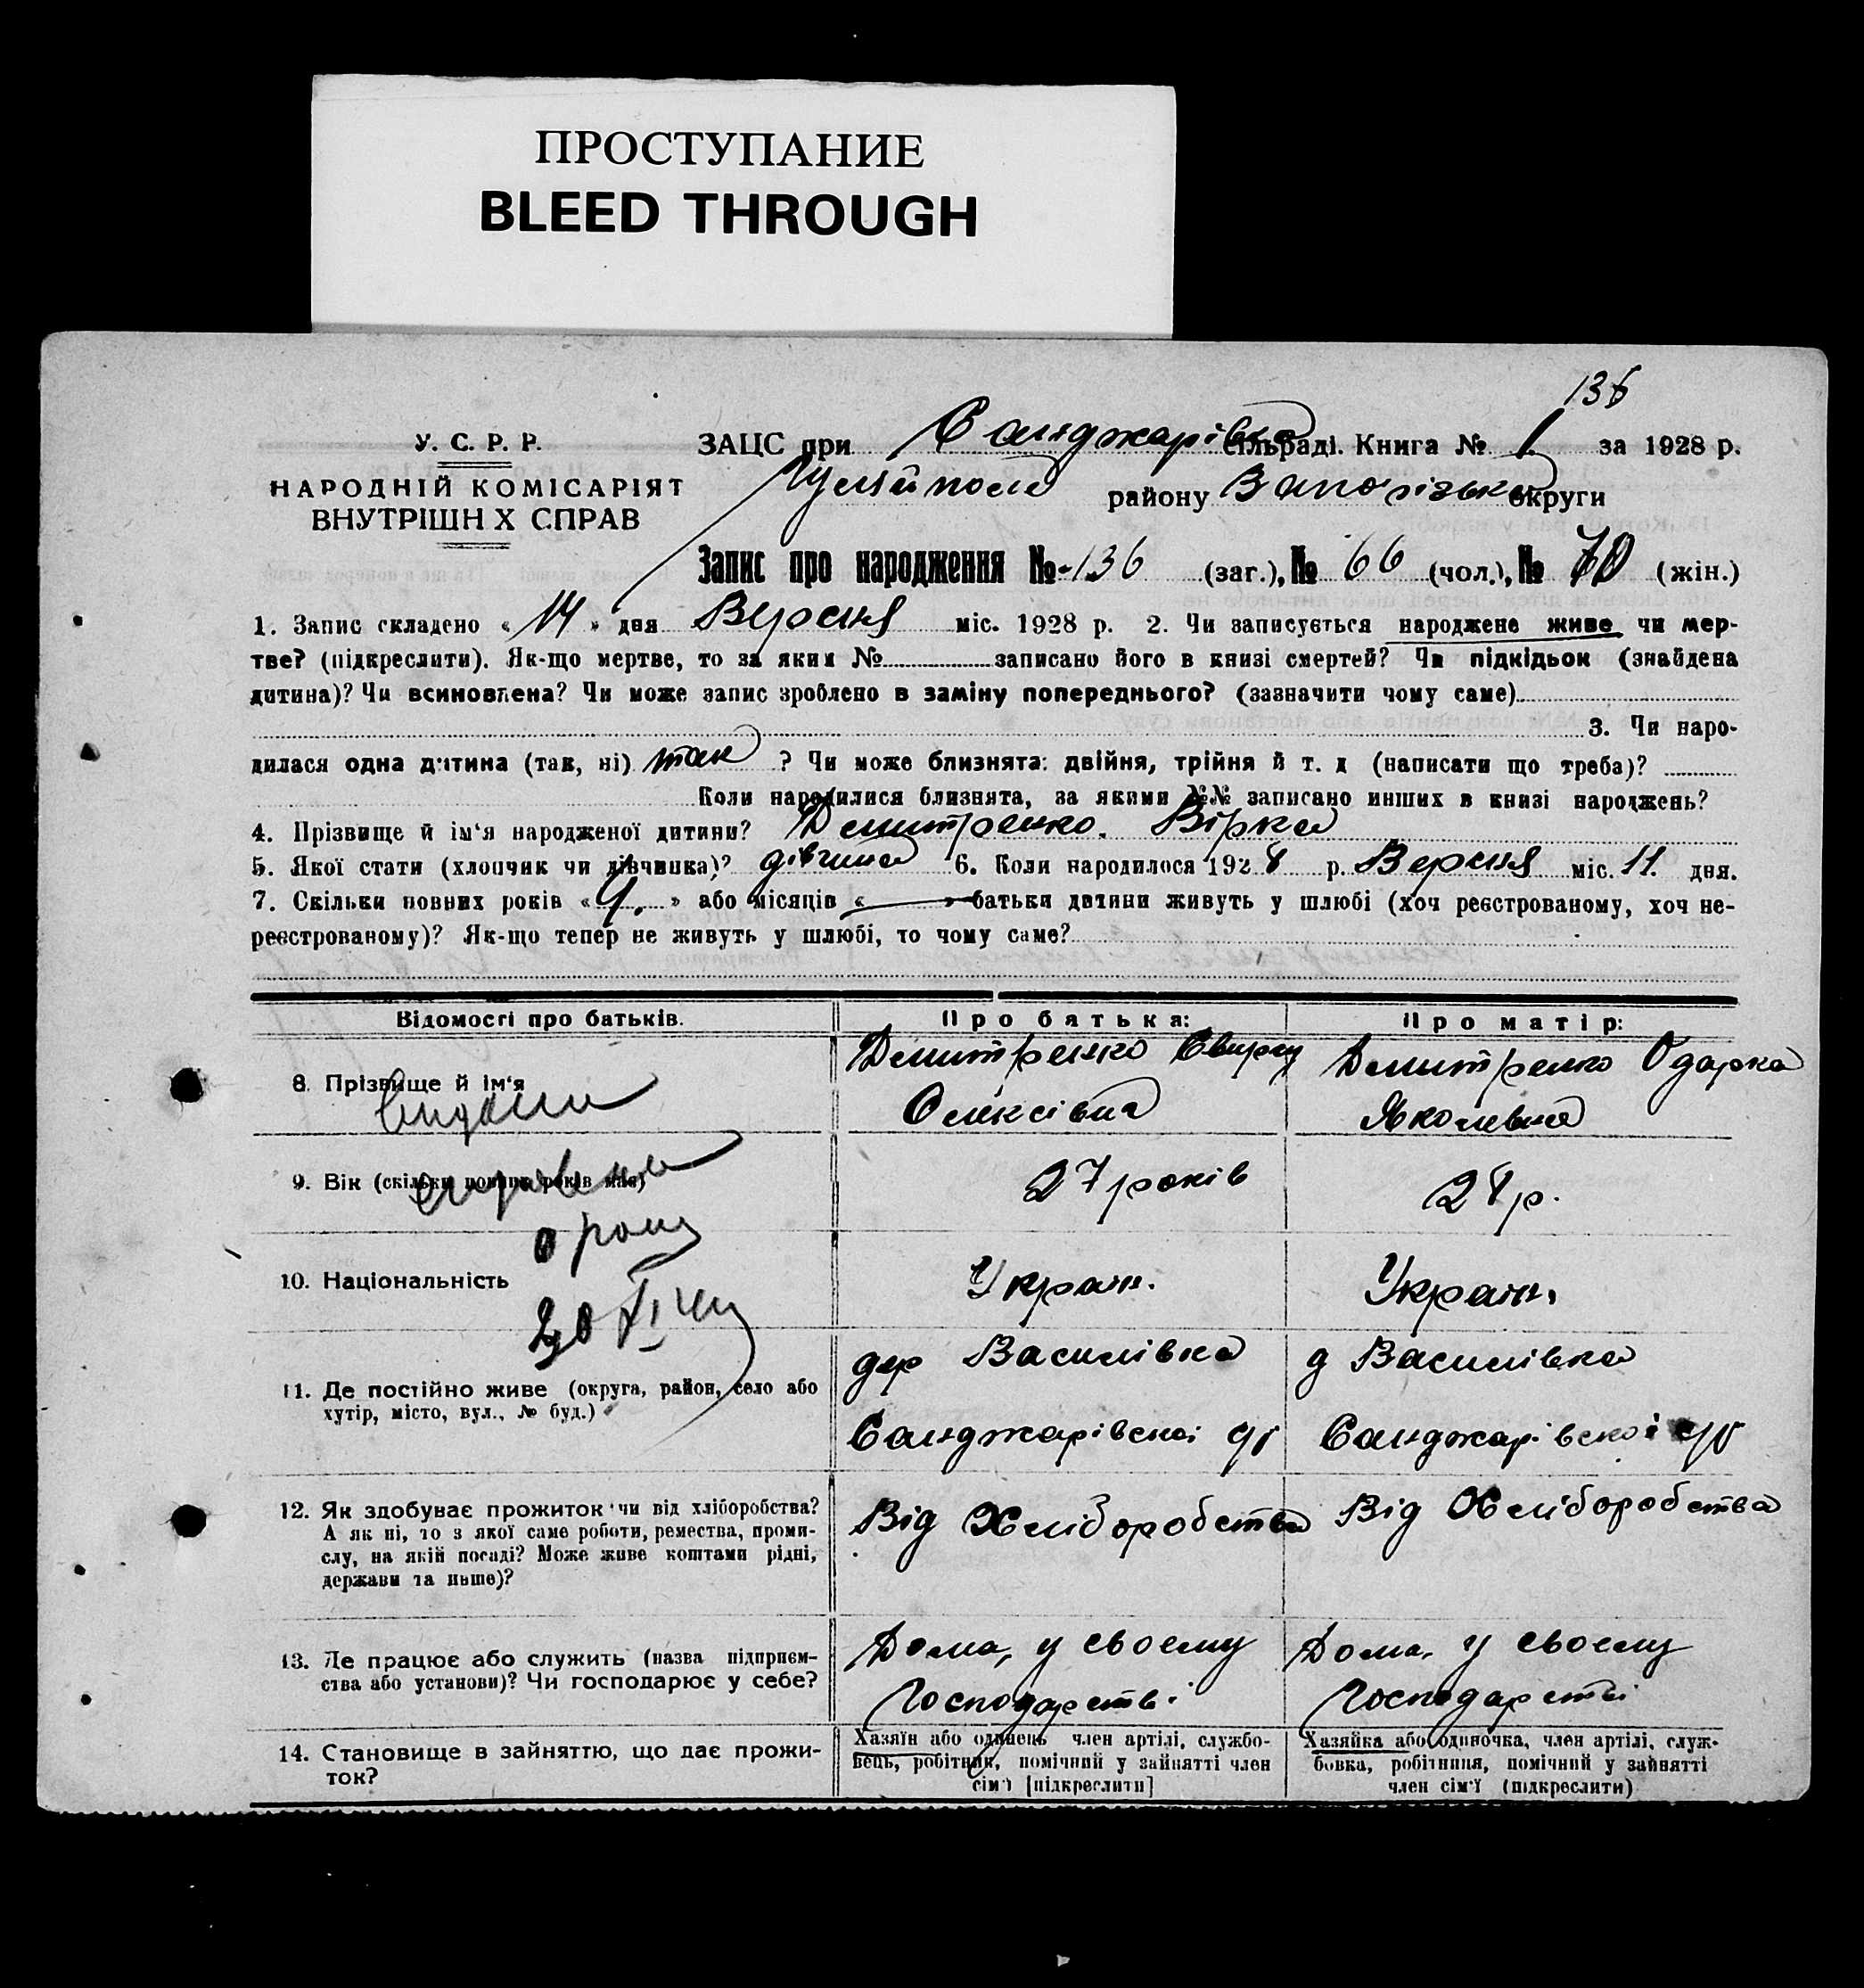 ПРОСТУПАНИЕ
BLEED THROUGH
136
У. С. Р. Р.
НАРОДНІЙ КОМІСАРІЯТ
ВНУТРІШН Х СПРАВ
ЗАЦС при Санджарівка сільраді. Книга № 1 за 1928 р.
району Запорізька округи
Запис про народження № 136 (заг.), № 66 (чол.), № 70 (жін.)
1. Запис складено « 14 » дня Вересня міс. 1928 р. 2. Чи записується народжене живе чи мер-
тве? (підкреслити). Як-що мертве, то за яким № записано його в книзі смертей? Чи підкідьок (знайдена
дитина)? Чи всиновлена? Чи може запис зроблено в заміну попереднього? (зазначити чому саме)
3. Чи наро-
дилася одна дитина (так, ні) так ? Чи може близнята: двійня, трійня й т. д (написати що треба)?
Коли народилися близнята, за якими №№ записано инших в книзі народжень?
4. Прізвище й ім'я народженої дитини? Демитренко. Вірка
5. Якої стати (хлопчик чи дівчинка)? дівчина 6. Коли народилося 1928 р. Вересня міс. 11. дня.
7. Скільки повних років « 4. » або місяців « » батьки дитини живуть у шлюбі (хоч реєстрованому, хоч не-
реєстрованому)? Як-що тепер не живуть у шлюбі, то чому саме?
Відомості про батьків.
Про батька:
Про матір:
8. Прізвище й ім'я
Демитренко
Олексівна
Демитренко Одарка
Яколевна
9. Вік (скільки повних років має)
27 років
28 р.
10. Національність
Україн.
Україн.
20 XI
11. Де постійно живе (округа, район, село або
хутір, місто, вул., № буд.)
дер Василівка
Санджарівскоі
д Василівка
Санджарівскоі
12. Як здобуває прожиток чи від хліборобства?
А як ні, то з якої саме роботи, ремества, проми-
слу, на якій посаді? Може живе коштами рідні,
держави та инше)?
Від Хліборобства
Від Хліборобства
13. Де працює або служить (назва підприєм-
ства або установи)? Чи господарює у себе?
Дома, у своему
Господарстві
Дома, у своему
Господарстві
14. Становище в зайняттю, що дає прожи-
ток?
Хазяїн або одинець член артілі, службо-
вець, робітник, помічний у зайнятті член
сім'ї [підкреслити]
Хазяйка або одиночка, член артілі, служ-
бовка, робітниця, помічний у зайнятті
член сім'ї (підкреслити)